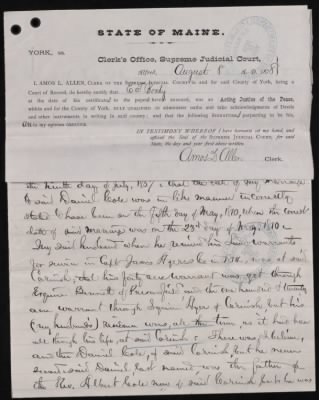 STATE OF MAINE.
YORK, ss.
Clerk's Office, Supreme Judicial Court,
August 8 A. D. 1881
I, AMOS L. ALLEN, CLERK OF THE SUPREME JUDICIAL COURT in and for said County of York, being a
Court of Record, do hereby certify that
at the date of his certificate to the papers hereto annexed, was an Acting Justice of the Peace,
within and for the County of York, duly authorized to administer oaths and take acknowledgments of Deeds
and other instruments in writing in said county; and that the following signature purporting to be his,
is in my opinion genuine.
IN TESTIMONY WHEREOF I have hereunto set my hand, and
affixed the Seal of the SUPREME JUDICIAL COURT, for said
State, the day and year first above written.
Amos L Allen Clerk.
the ninth day of July, that the date of my marriage
to said Daniel Cole was in like manner
stated to have been on the fifth day of May, 1810, when the
date of said marriage was on the 23d day of May, 1810
My said husband when he received his land warrants
for service in Capt James Ayers Co in was at said
Cornish, that his forty acre warrant was got through
Esquire of Parsonsfield and the one hundred & twenty
acre warrant through Squire Ayer of Cornish, but his
(my husbands) residence was, all the time, as it had been
all through his life, at said Cornish. There was, I believe,
another Daniel Cole, of said Cornish, but he never
last named was the father of
the Rev. Albert Cole now of said Cornish but he was